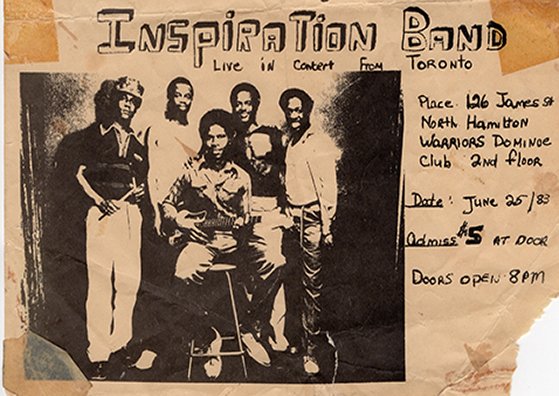 INSPIRATION BAND
LIVE IN CONCERT FROM TORONTO
Place. 126 James St
North Hamilton
WARRIORS DOMINOE
Club 2nd floor
Date: June 25/83
Admiss $5 AT DOOR
DOORS OPEN 8PM